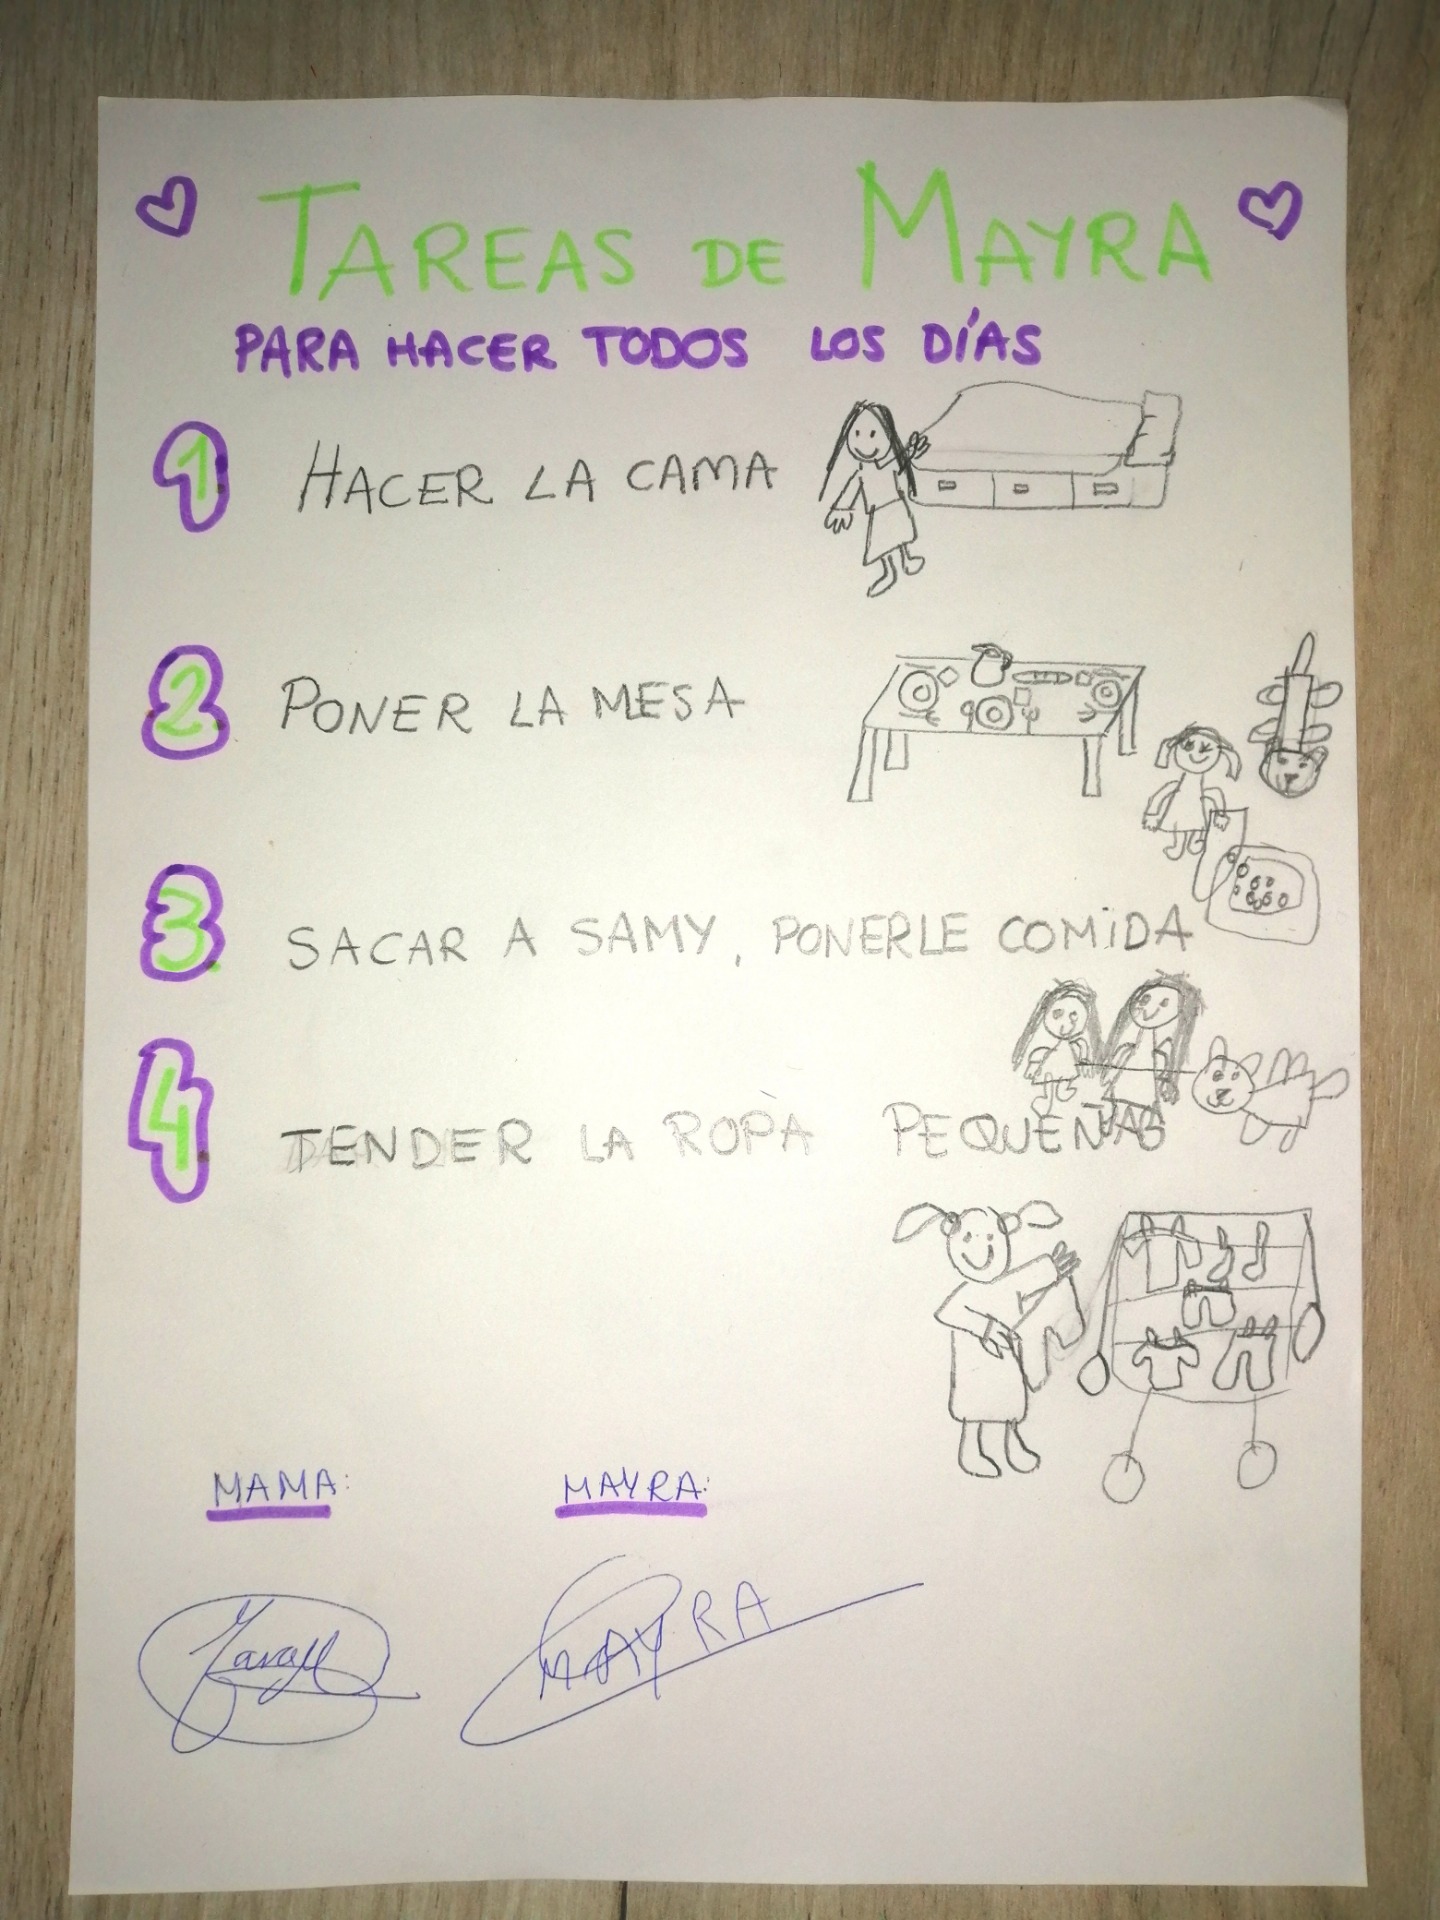 TAREAS DE MAYRA
PARA HACER TODOS LOS DÍAS
1 HACER LA CAMA
2 PONER LA MESA
3 SACAR A SAMY, PONERLE COMIDA
4 TENDER LA ROPA PEQUEÑAS
MAMA: MAYRA:
MAYRA